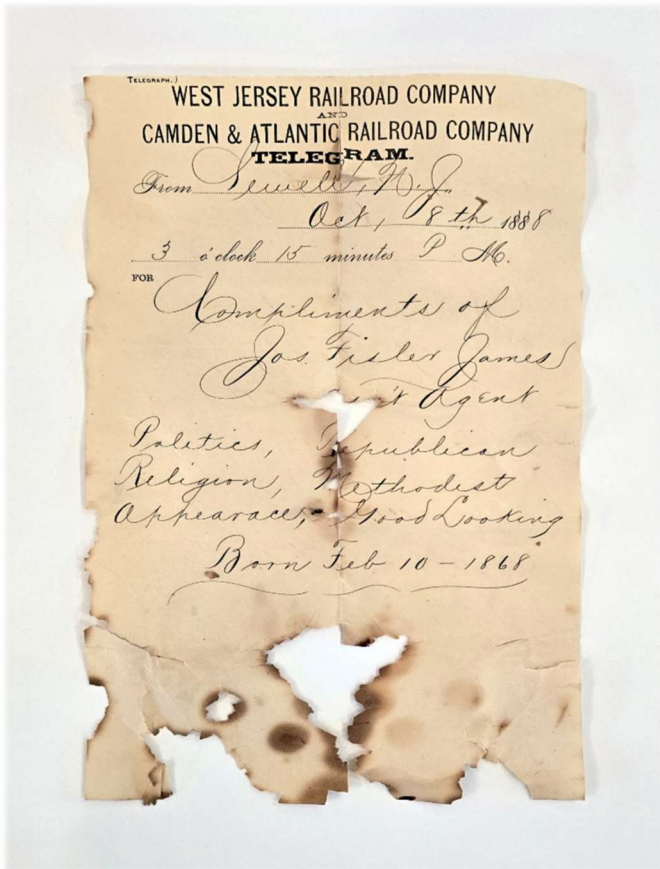 TELEGRAPH.)
WEST JERSEY RAILROAD COMPANY
AND
CAMDEN & ATLANTIC RAILROAD COMPANY
TELEGRAM.
From Sewell, N.J.
Oct, 8th 1888
3 o'clock 15 minutes P M.
FOR
Compliments of
Jos. Fisler James
Agent
Politics, Republican
Religion, Methodist
Appearace, Good Looking
Born Feb 10 - 1868